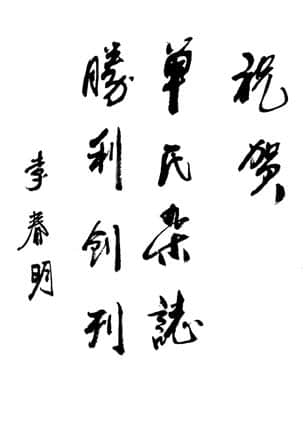 祝贺
单氏杂誌
勝利创刊
李春明